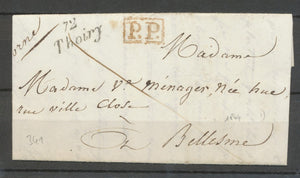 72
Thoiry
P.P.
orne
Madame
Madame Ve Ménager, Née hue
rue ville close
à
Bellesme
341
1844